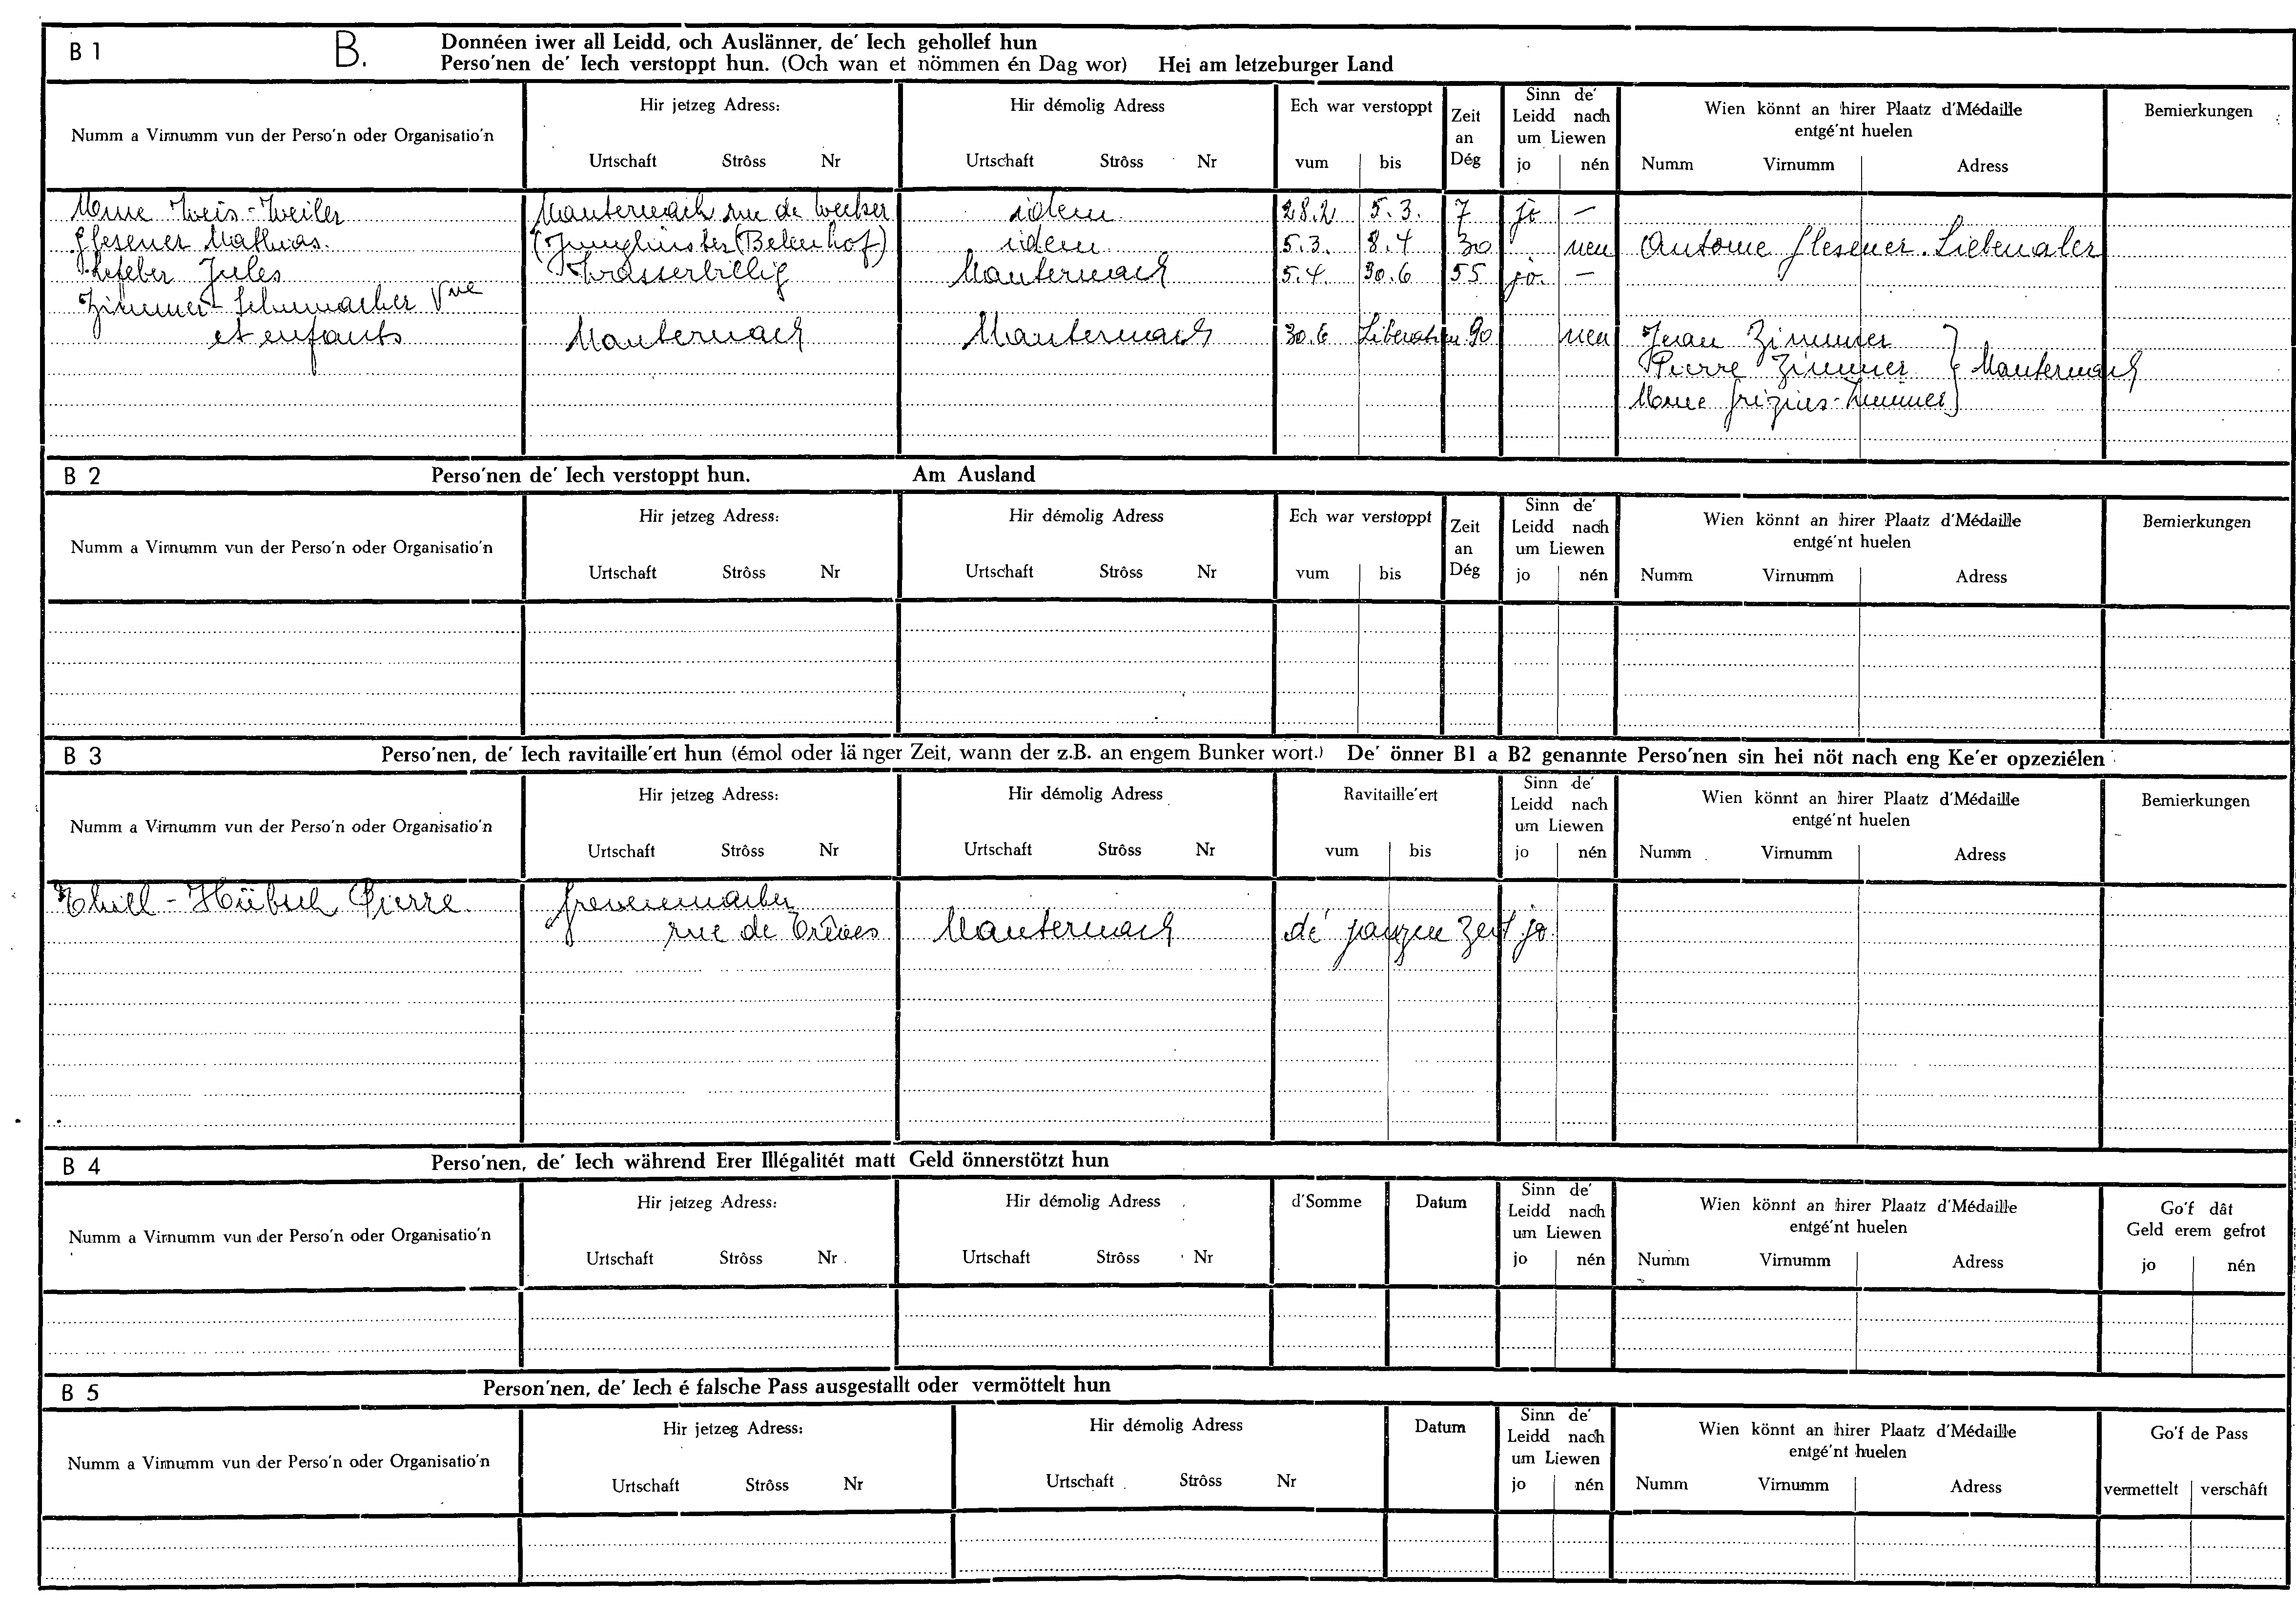 B 1 B. Donnéen iwer all Leidd, och Auslänner, de' Iech gehollef hun
Perso'nen de' Iech verstoppt hun. (Och wan et nömmen én Dag wor) Hei am letzeburger Land
Numm a Virnumm vun der Perso'n oder Organisatio'n
Hir jetzeg Adress:
Urtschaft Strôss Nr
Hir démolig Adress
Urtschaft Strôss Nr
Ech war verstoppt
vum bis
Zeit
an
Dég
Sinn de'
Leidd nach
um Liewen
jo nén
Wien könnt an hirer Plaatz d'Médaille
entgé'nt huelen
Numm Virnumm Adress
Bemierkungen
Mme Weis-Weiler Manternach rue de Wecker idem 28.2 5.3. 7 jo —
Glesener Mathias. (Junglinster (Belenhof) idem 5.3. 8.4 30 nen Antoine Glesener. Liebenaler
Jules Wasserbillig Manternach 5.4. 30.6 55 jo. —
Zimmer-Schumacher Vve
et enfants Manternach Manternach 30.6 Liberation 90 nen Jean Zimmer
Pierre Zimmer } Manternach
Mme -Zimmer
B 2 Perso'nen de' Iech verstoppt hun. Am Ausland
Numm a Virnumm vun der Perso'n oder Organisatio'n
Hir jetzeg Adress:
Urtschaft Strôss Nr
Hir démolig Adress
Urtschaft Strôss Nr
Ech war verstoppt
vum bis
Zeit
an
Dég
Sinn de'
Leidd nach
um Liewen
jo nén
Wien könnt an hirer Plaatz d'Médaille
entgé'nt huelen
Numm Virnumm Adress
Bemierkungen
B 3 Perso'nen, de' Iech ravitaille'ert hun (émol oder lä nger Zeit, wann der z.B. an engem Bunker wort.) De' önner B1 a B2 genannte Perso'nen sin hei nöt nach eng Ke'er opzeziélen
Numm a Virnumm vun der Perso'n oder Organisatio'n
Hir jetzeg Adress:
Urtschaft Strôss Nr
Hir démolig Adress
Urtschaft Strôss Nr
Ravitaille'ert
vum bis
Sinn de'
Leidd nach
um Liewen
jo nén
Wien könnt an hirer Plaatz d'Médaille
entgé'nt huelen
Numm Virnumm Adress
Bemierkungen
Thill-Hübsch Pierre Grevenmacher
rue de Trèves Manternach dé ganzen Zeit jo
B 4 Perso'nen, de' Iech während Erer Illégalitét matt Geld önnerstötzt hun
Numm a Virnumm vun der Perso'n oder Organisatio'n
Hir jetzeg Adress:
Urtschaft Strôss Nr
Hir démolig Adress
Urtschaft Strôss Nr
d'Somme
Datum
Sinn de'
Leidd nach
um Liewen
jo nén
Wien könnt an hirer Plaatz d'Médaille
entgé'nt huelen
Numm Virnumm Adress
Go'f dât
Geld erem gefrot
jo nén
B 5 Person'nen, de' Iech é falsche Pass ausgestallt oder vermöttelt hun
Numm a Virnumm vun der Perso'n oder Organisatio'n
Hir jetzeg Adress:
Urtschaft Strôss Nr
Hir démolig Adress
Urtschaft Strôss Nr
Datum
Sinn de'
Leidd nach
um Liewen
jo nén
Wien könnt an hirer Plaatz d'Médaille
entgé'nt huelen
Numm Virnumm Adress
Go'f de Pass
vermettelt verschâft